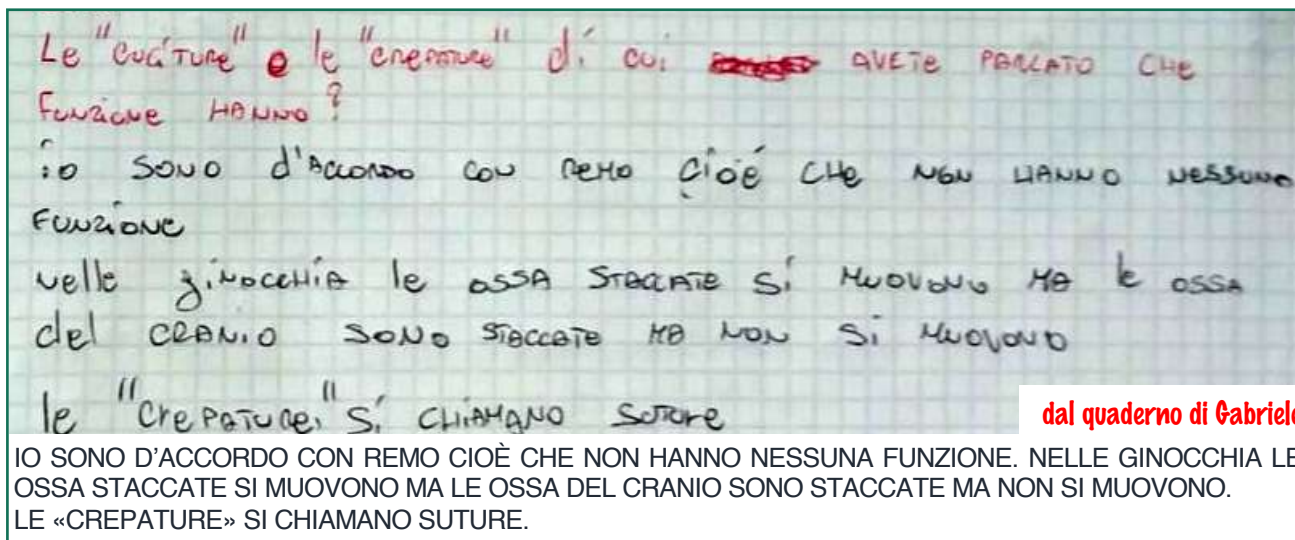 Le "cuciture" e le "crepature" di cui AVETE PARLATO CHE
FUNZIONE HANNO?
io SONO d'ACCORDO CON REMO CIOÈ CHE NON HANNO NESSUNO
FUNZIONE
nelle ginocchia le OSSA STACCATE Si MUOVONO MA le OSSA
del CRANIO SONO STACCATE MA NON Si MUOVONO
le "crepature" Si CHIAMANO SUTURE
dal quaderno di Gabriele
IO SONO D'ACCORDO CON REMO CIOÈ CHE NON HANNO NESSUNA FUNZIONE. NELLE GINOCCHIA LE
OSSA STACCATE SI MUOVONO MA LE OSSA DEL CRANIO SONO STACCATE MA NON SI MUOVONO.
LE «CREPATURE» SI CHIAMANO SUTURE.